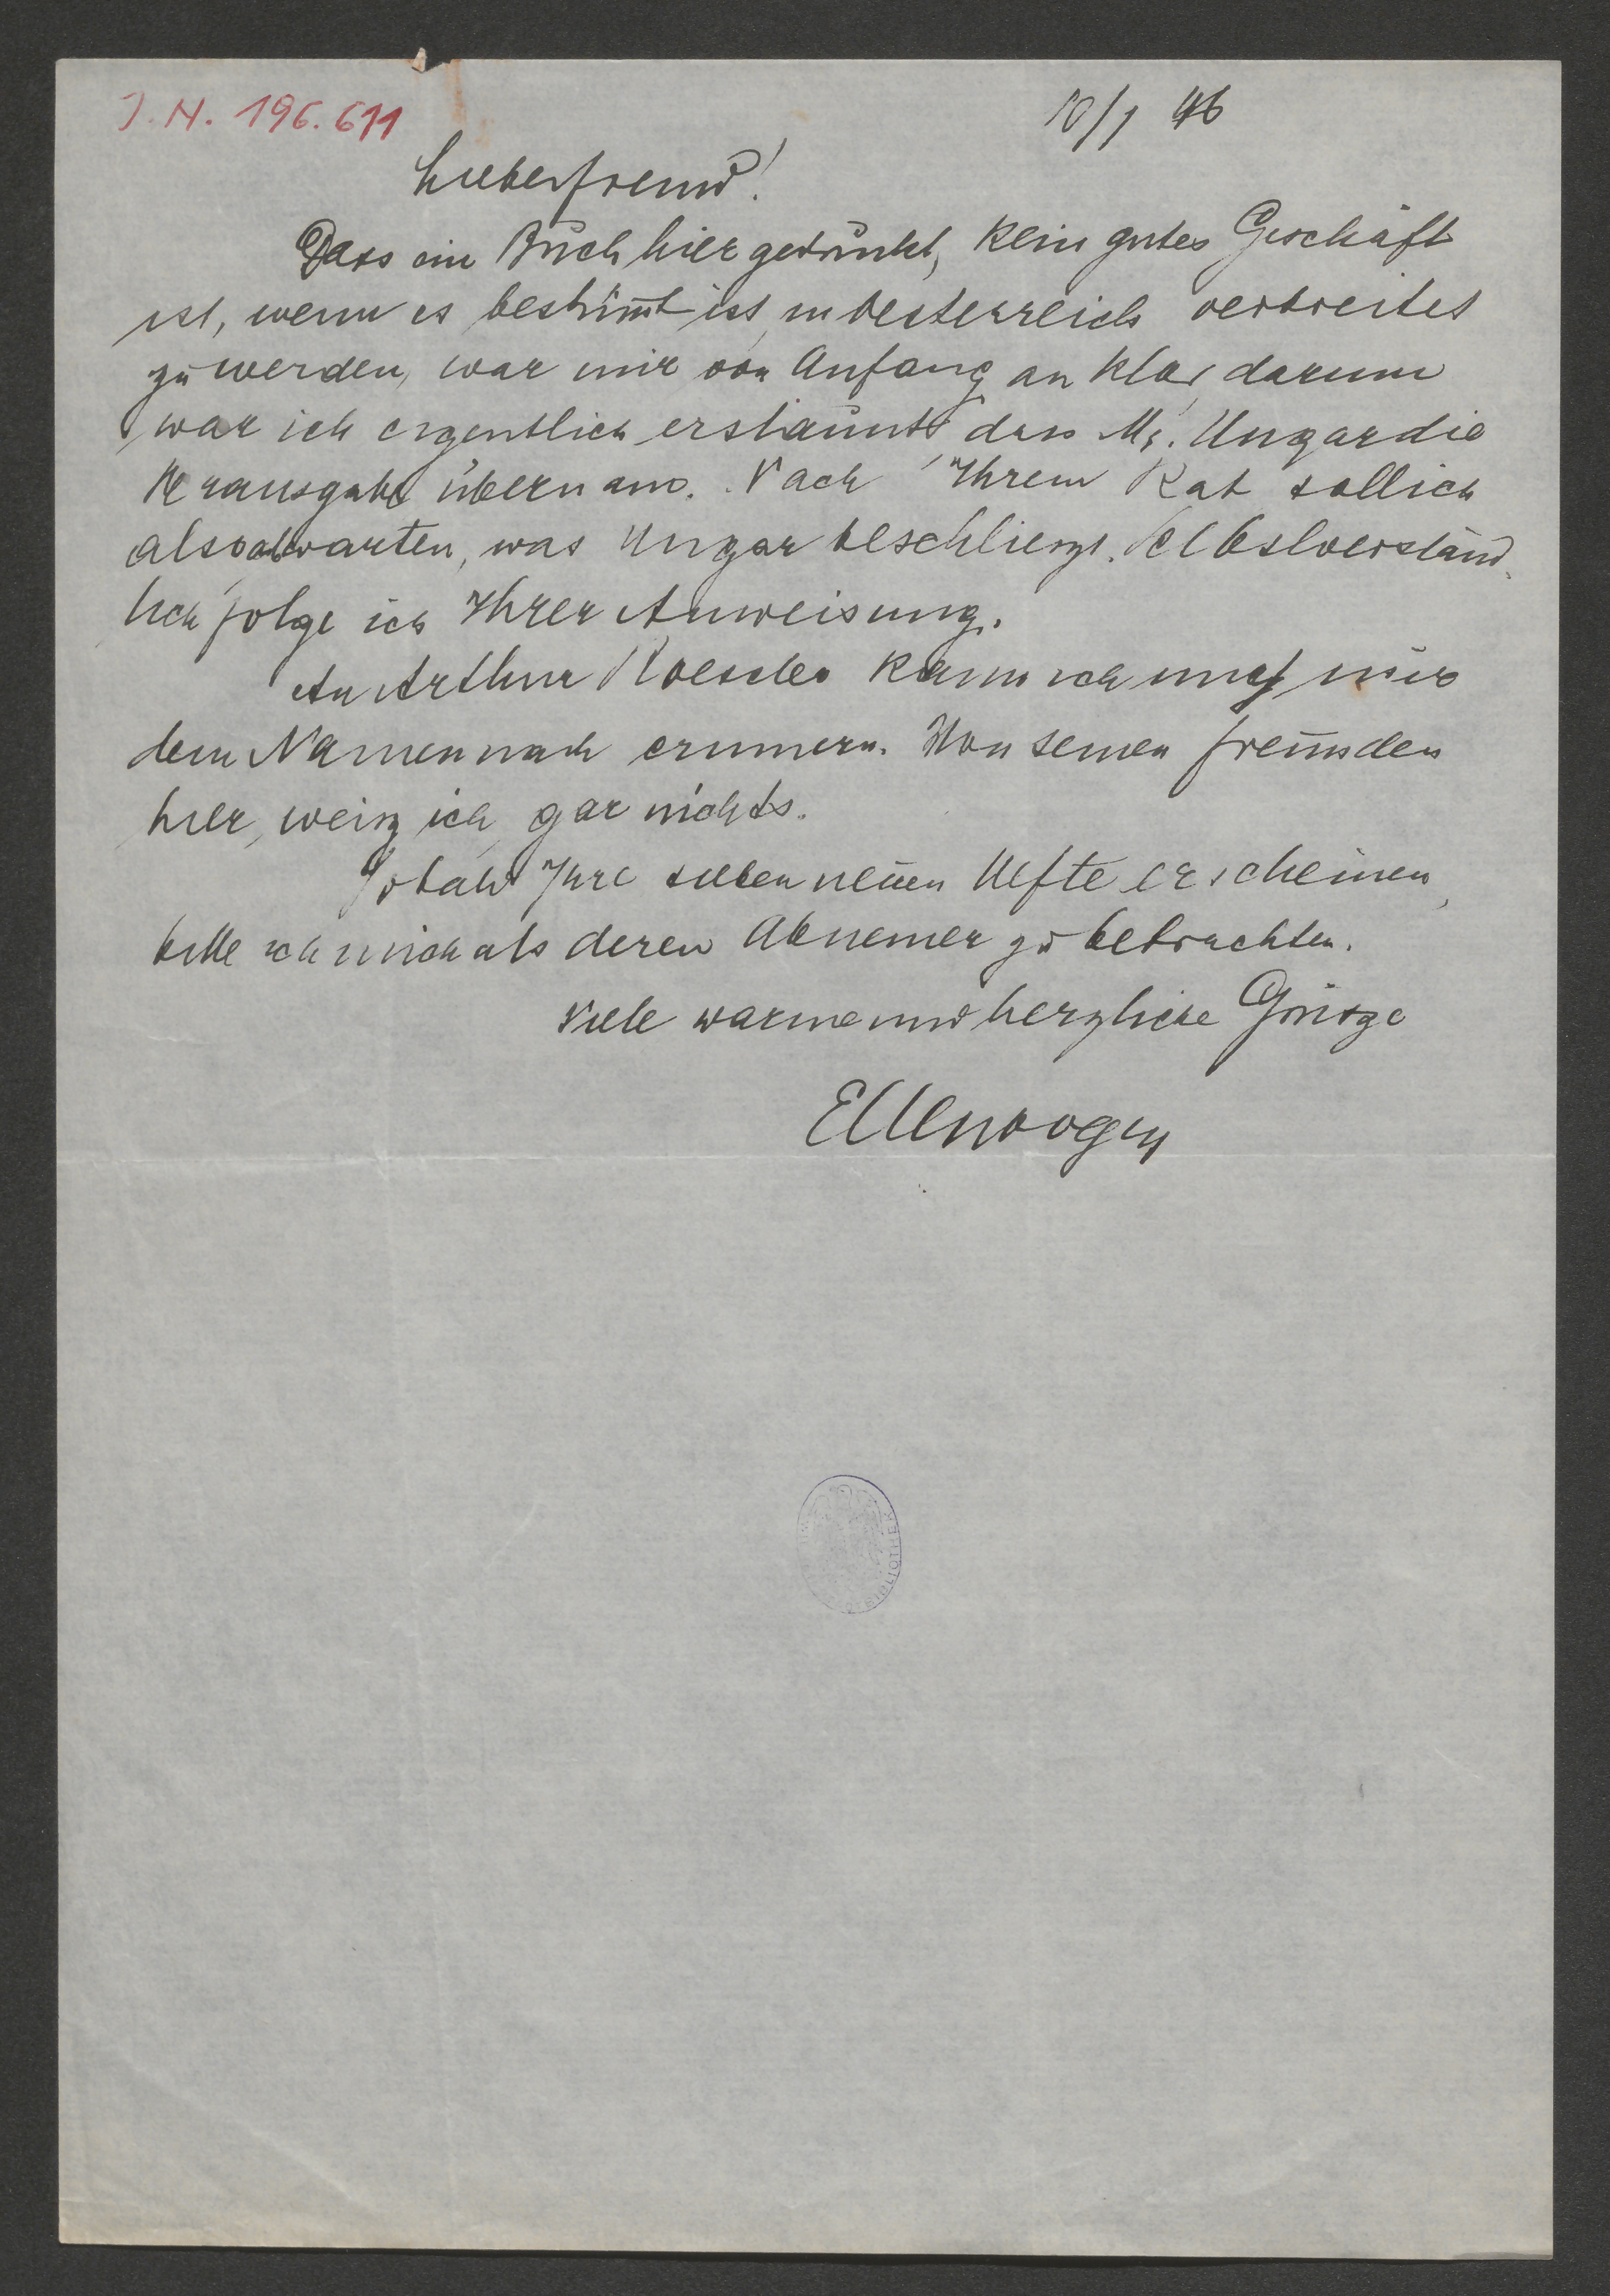 J.N. 196.611
10/1 46
Lieber Freund!
Dass ein Buch hier gedruckt, kein gutes Geschäft
ist, wenn es bestimt ist, in Oesterreich verbreitet
zu werden, war mir von Anfang an klar, darum
war ich eigentlich erstaunt, dass Mr. Ungar die
Herausgabe übernam. Nach Ihrem Rat soll ich
also abwarten, was Ungar beschlieszt. Selbstverständ
lich folge ich Ihrer Anweisung.
An Arthur Roessler kann ich mich nur
dem Namen nach erinnern. Von seinen Freunden
hier, weisz ich gar nichts.
Sobald Ihre sieben neuen Hefte erscheinen,
bitte ich mich als deren Abnemer zu betrachten.
Viele warme und herzliche Grüsze
Ellenbogen